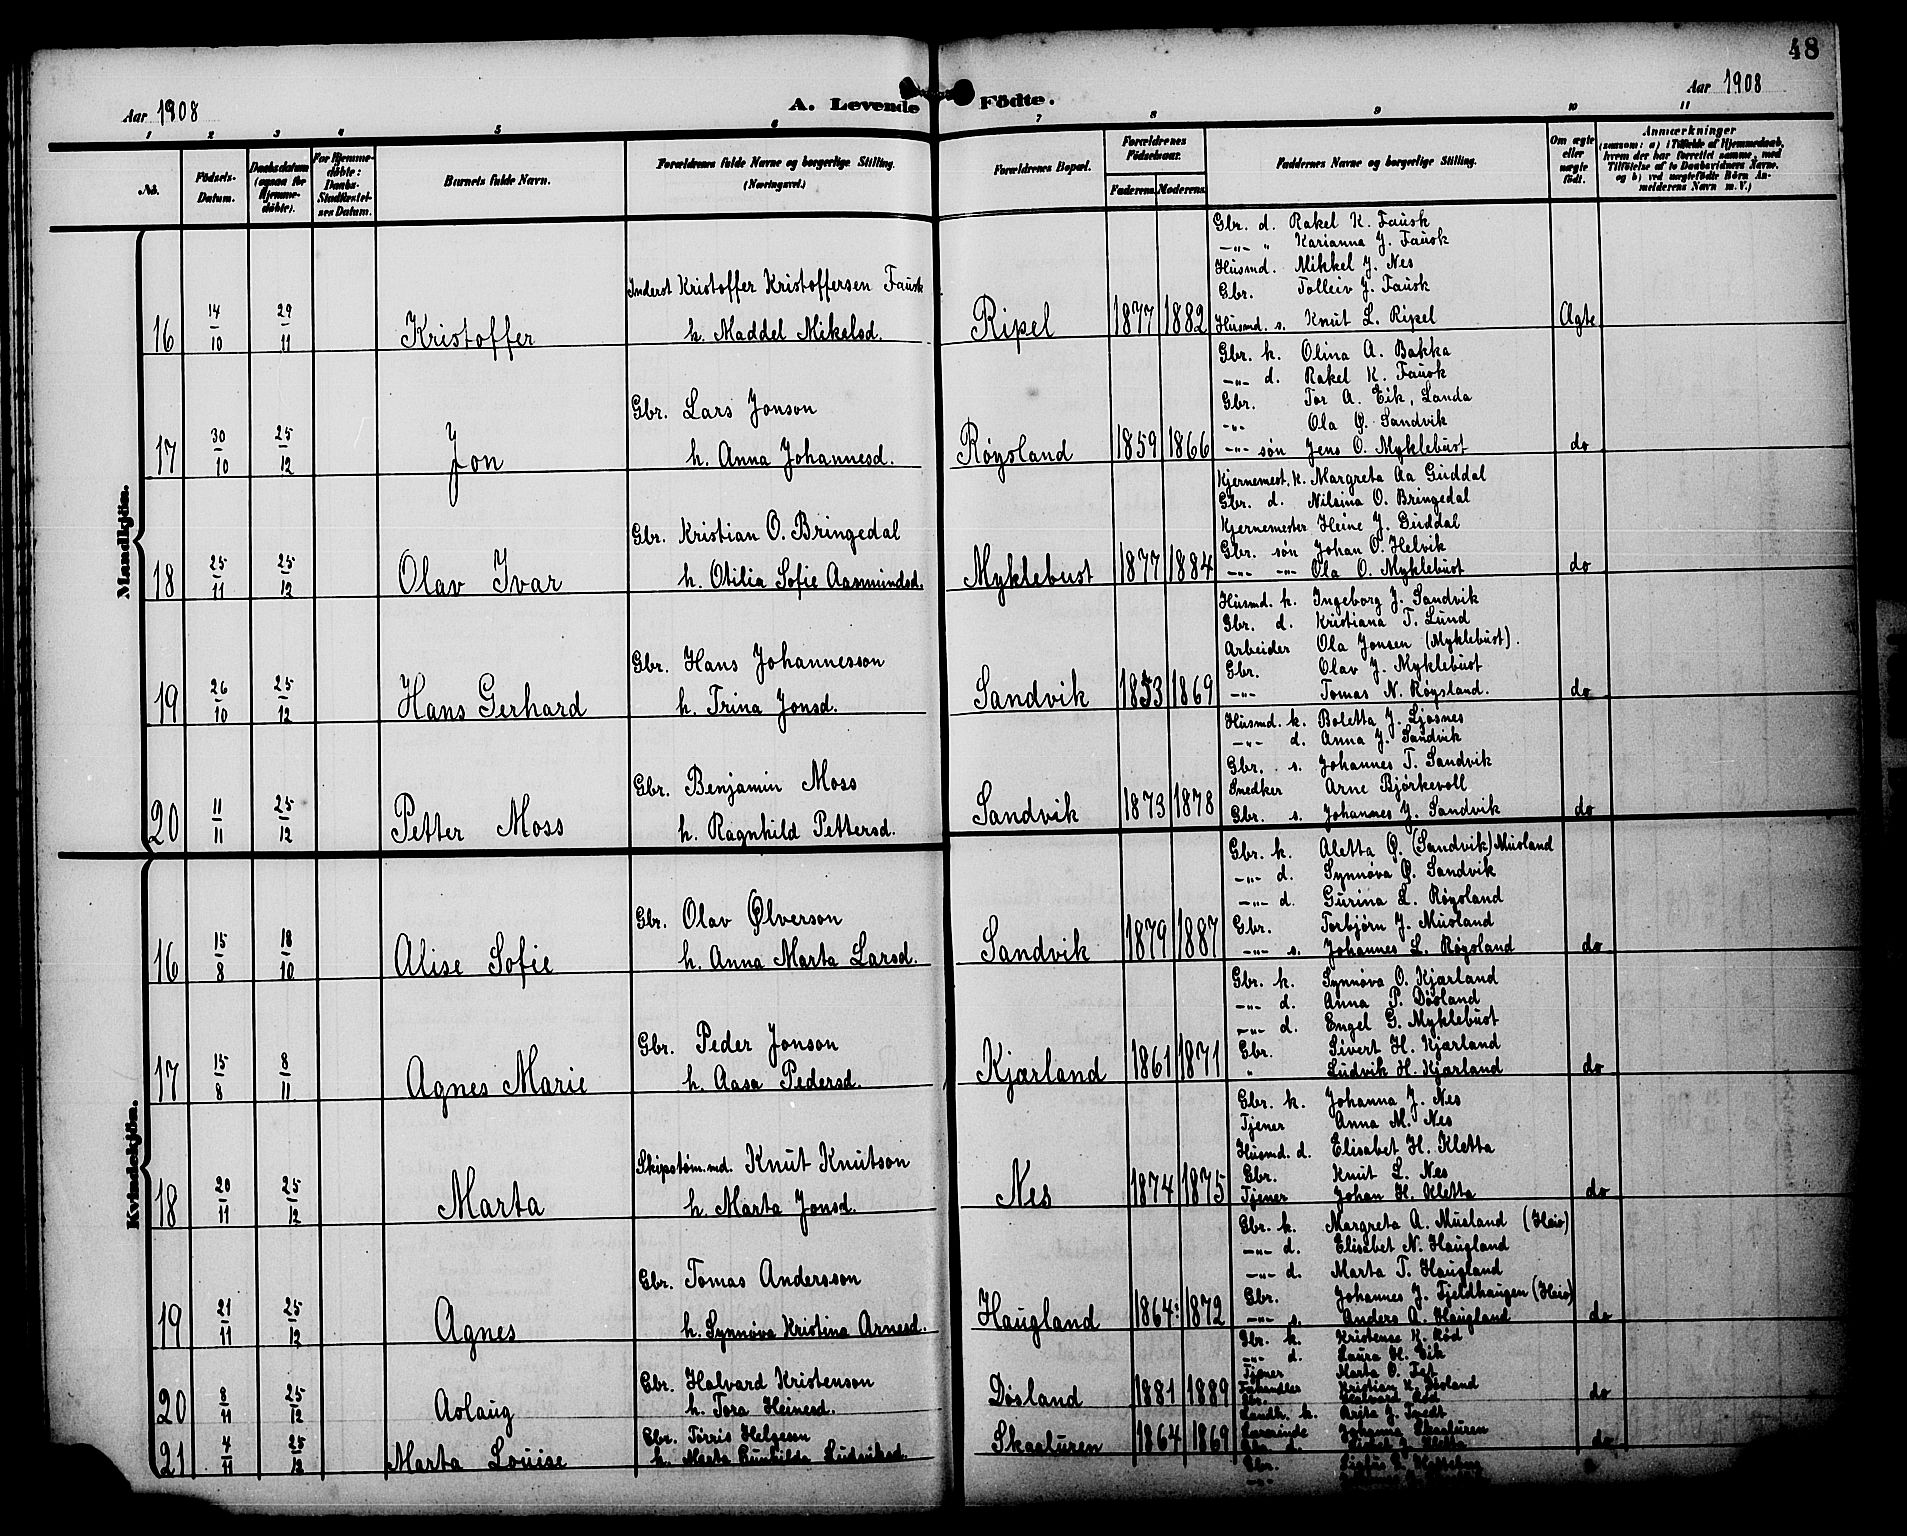 48
Aar 1908
A. Levende Födte.
Aar 1908
1 2 3 4 5 6 7 8 9 10 11
No.
Födsels-Datum.
Daabsdatum (ogsaa for Hjemme-döbte).
For Hjemme-döbte: Daabs-Stadfæstel-ses Datum.
Barnets fulde Navn.
Forældrenes fulde Navne og borgerlige Stilling. (Næringsvei.)
Forældrenes Bopæl.
Forældrenes Födselsaar.
Faderens. Moderens.
Faddernes Navne og borgerlige Stilling.
Om ægte eller uægte födt.
Anmærkninger
(saasom: a) i Tilfælde af Hjemmedaab, hvem der har forrettet samme, med Tilföielse af to Daabsvidners Navne, og b) ved uægtefödte Börn An-melderens Navn m. V.)
Mandkjön.
16 14/10 29/11 Kristoffer
Inderst Kristoffer Kristoffersen Fausk
h. Maddel Mikelsd.
Ripel 1877 1882
Gbr. d. Rakel K. Fausk
-"- " Karianna J. Fausk
Husmd. Mikkel J. Nes
Gbr. Tolleiv J. Fausk
Husmd. s. Knut L. Ripel
Ægte
17 30/10 25/12 Jon
Gbr. Lars Jonson
h. Anna Johannesd.
Røysland 1859 1866
Gbr. k. Olina A. Bakka
-"- d. Rakel K. Fausk
Gbr. Tor A. Eik, Landa
-"- Ola Ø. Sandvik
-"- søn Jens O. Myklebust
do
18 25/11 25/12 Olav Ivar
Gbr. Kristian O. Bringedal
h. Otilia Sofie Aasmundsd.
Myklebust 1877 1884
Kjernemest. k. Margreta Aa Guddal
Gbr. d. Nilsina O. Bringedal
Kjernemester Heine J. Guddal
Gbr. søn Johan O. Helvik
-"- -"- Ola O. Myklebust
do
19 26/10 25/12 Hans Gerhard
Gbr. Hans Johannesson
h. Trina Jonsd.
Sandvik 1853 1869
Husmd. k. Ingeborg J. Sandvik
Gbr. d. Kristiana T. Lund
Arbeider Ola Jonsen (Myklebust).
Gbr. Olav J. Myklebust
-"- Tomas N. Røysland.
do
20 11/11 25/12 Petter Moss
Gbr. Benjamin Moss
h. Ragnhild Pettersd.
Sandvik 1873 1878
Husmd. k. Boletta J. Ljosnes
-"- d. Anna J. Sandvik
Gbr. s. Johannes T. Sandvik
Snedker Arne Bjørkevoll
Gbr. s. Johannes J. Sandvik
do
Kvindekjön.
16 15/8 18/10 Alise Sofie
Gbr. Olav Ølverson
h. Anna Marta Larsd.
Sandvik 1879 1887
Gbr. k. Aletta Ø. (Sandvik) Musland
-"- d. Synnøva Ø. Sandvik
-"- d. Gurina L. Røysland
Gbr. Torbjørn J. Musland
-"- s. Johannes L. Røysland
do
17 15/8 8/11 Agnes Marie
Gbr. Peder Jonson
h. Aasa Pedersd.
Kjærland 1861 1871
Gbr. k. Synnøva O. Kjærland
-"- d. Anna P. Døsland
-"- d. Engel G. Myklebust
Gbr. Sivert H. Kjærland
" Ludvik H. Kjærland
do
18 20/11 25/12 Marta
Skipstøm.md. Knut Knutson
h. Marta Jonsd.
Nes 1874 1875
Gbr. k. Johanna J. Nes
Tjener Anna M. Nes
Husmd. d. Elisabet H. Kletta
Gbr. Knut L. Nes
Tjener Johan H. Kletta
do
19 21/11 25/12 Agnes
Gbr. Tomas Andersson
h. Synnøva Kristina Arnesd.
Haugland 1864 1872
Gbr. k. Margreta A. Musland (Hais)
-"- d. Elisabet N. Haugland
-"- d. Marta T. Haugland
Gbr. Johannes J. Fjeldhaugen (Hais)
-"- s. Anders A. Haugland
do
20 8/11 25/12 Aslaug
Gbr. Halvard Kristenson
h. Tora Heinesd.
Døsland 1881 1889
Gbr. k. Kristense K. Rød
-"- d. Laura H. Eik
Tjener Marta O. Tet
Kristian K. Døsland
Gbr. Halvard Rød
do
21 4/11 25/12 Marta Louise
Gbr. Tørris Helgeson
h. Marta Gunhilda Ludviksd.
Skaaluren 1864 1869
Landh. k. Brita J. Tvedt
Lærerinde Johanna Skaaluren
Gbr. d. Kletta
Gbr.
-"-
do